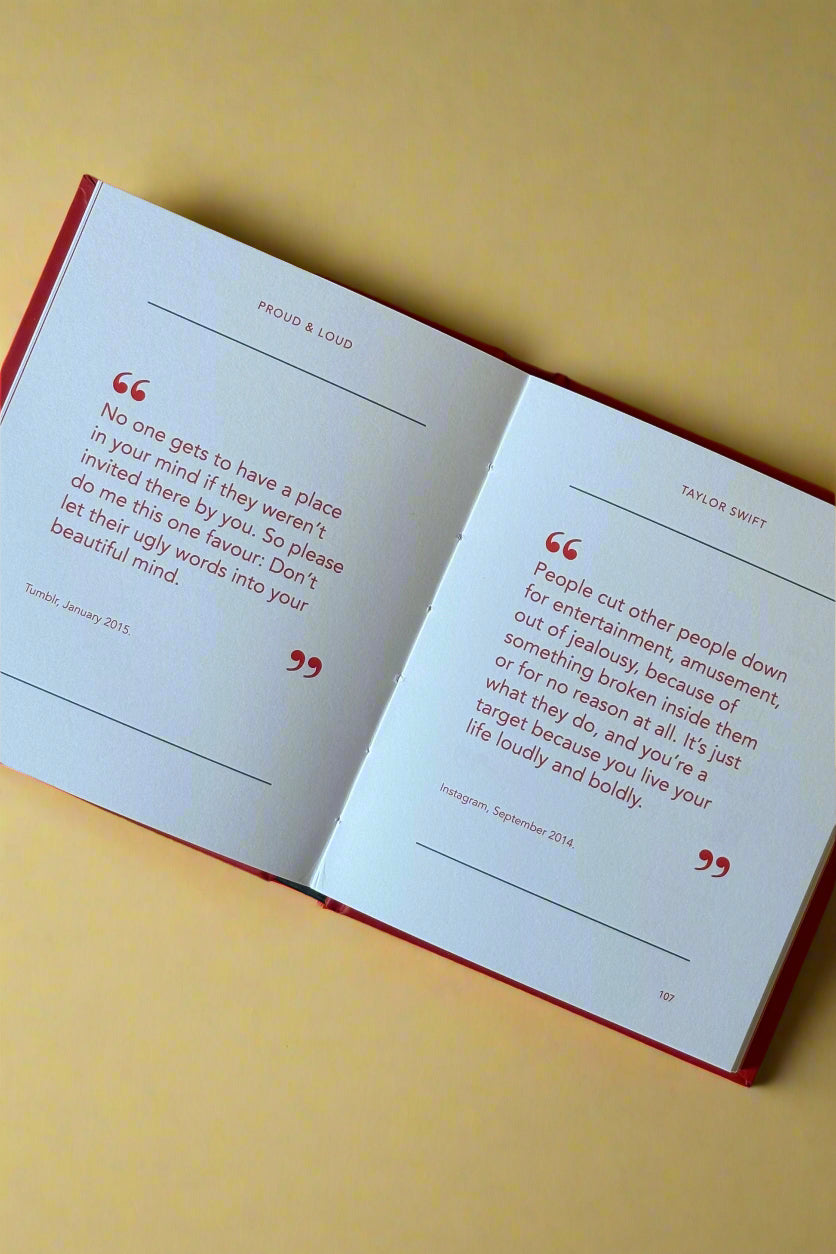 PROUD & LOUD
“
No one gets to have a place
in your mind if they weren’t
invited there by you. So please
do me this one favour: Don’t
let their ugly words into your
beautiful mind.
Tumblr, January 2015.
”
TAYLOR SWIFT
“
People cut other people down
for entertainment, amusement,
out of jealousy, because of
something broken inside them
or for no reason at all. It’s just
what they do, and you’re a
target because you live your
life loudly and boldly.
Instagram, September 2014.
”
107